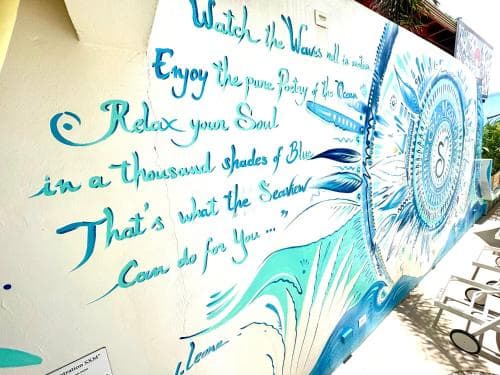 Watch the Waves roll in motion
Enjoy the pure Poetry of the Ocean
Relax your Soul
in a thousand shades of Blue
That's what the Seaview
Can do for You ..."
S